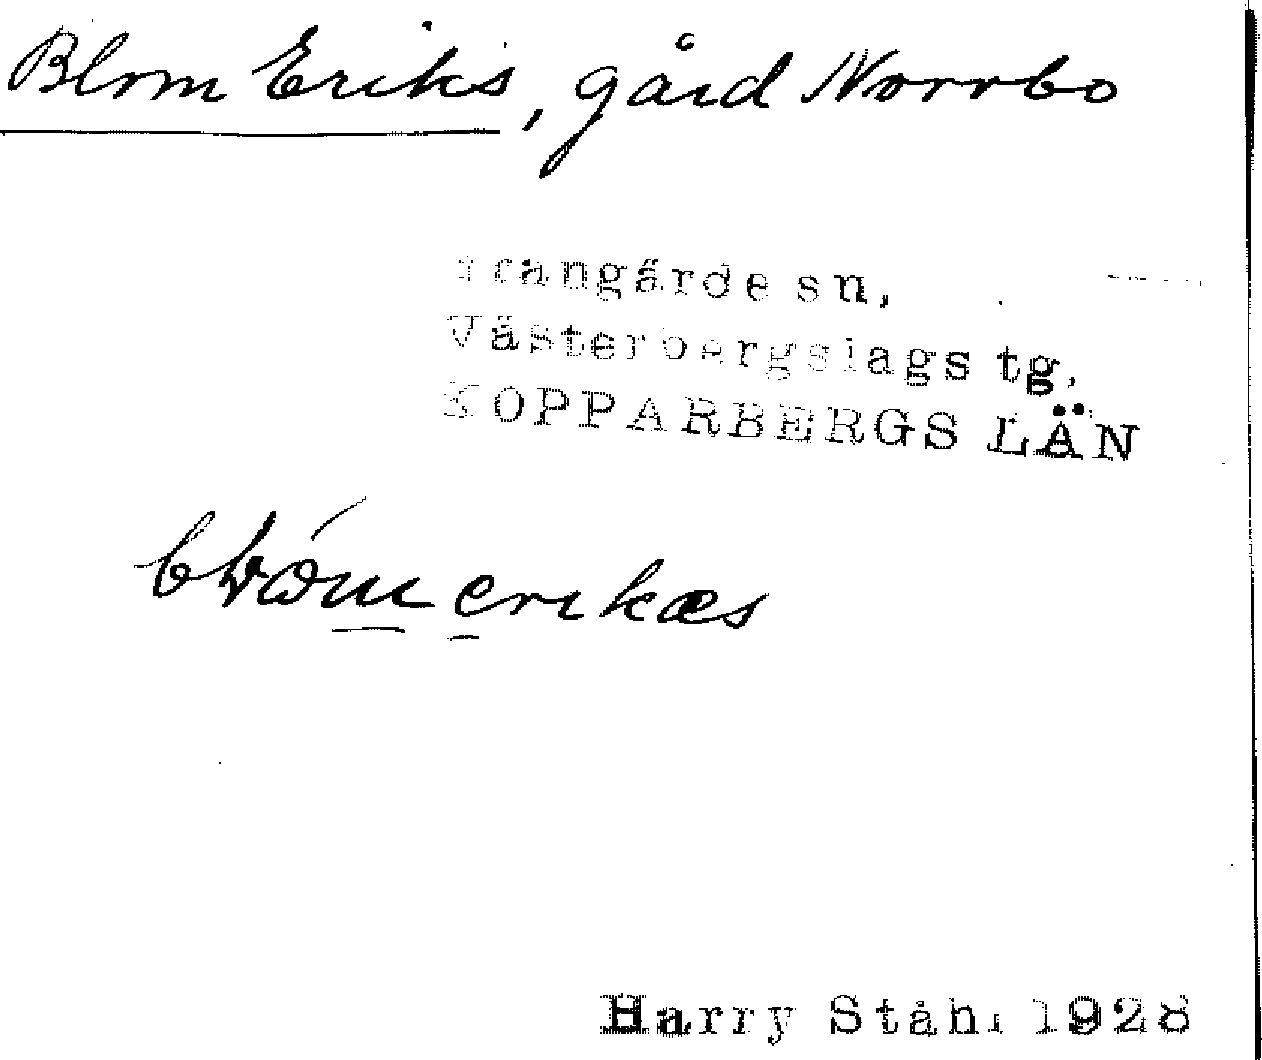 Blom Eriks, gård Norrbo
Grangärde sn,
Västerbergslags tg.
KOPPARBERGS LÄN
Harry Ståhl 1928